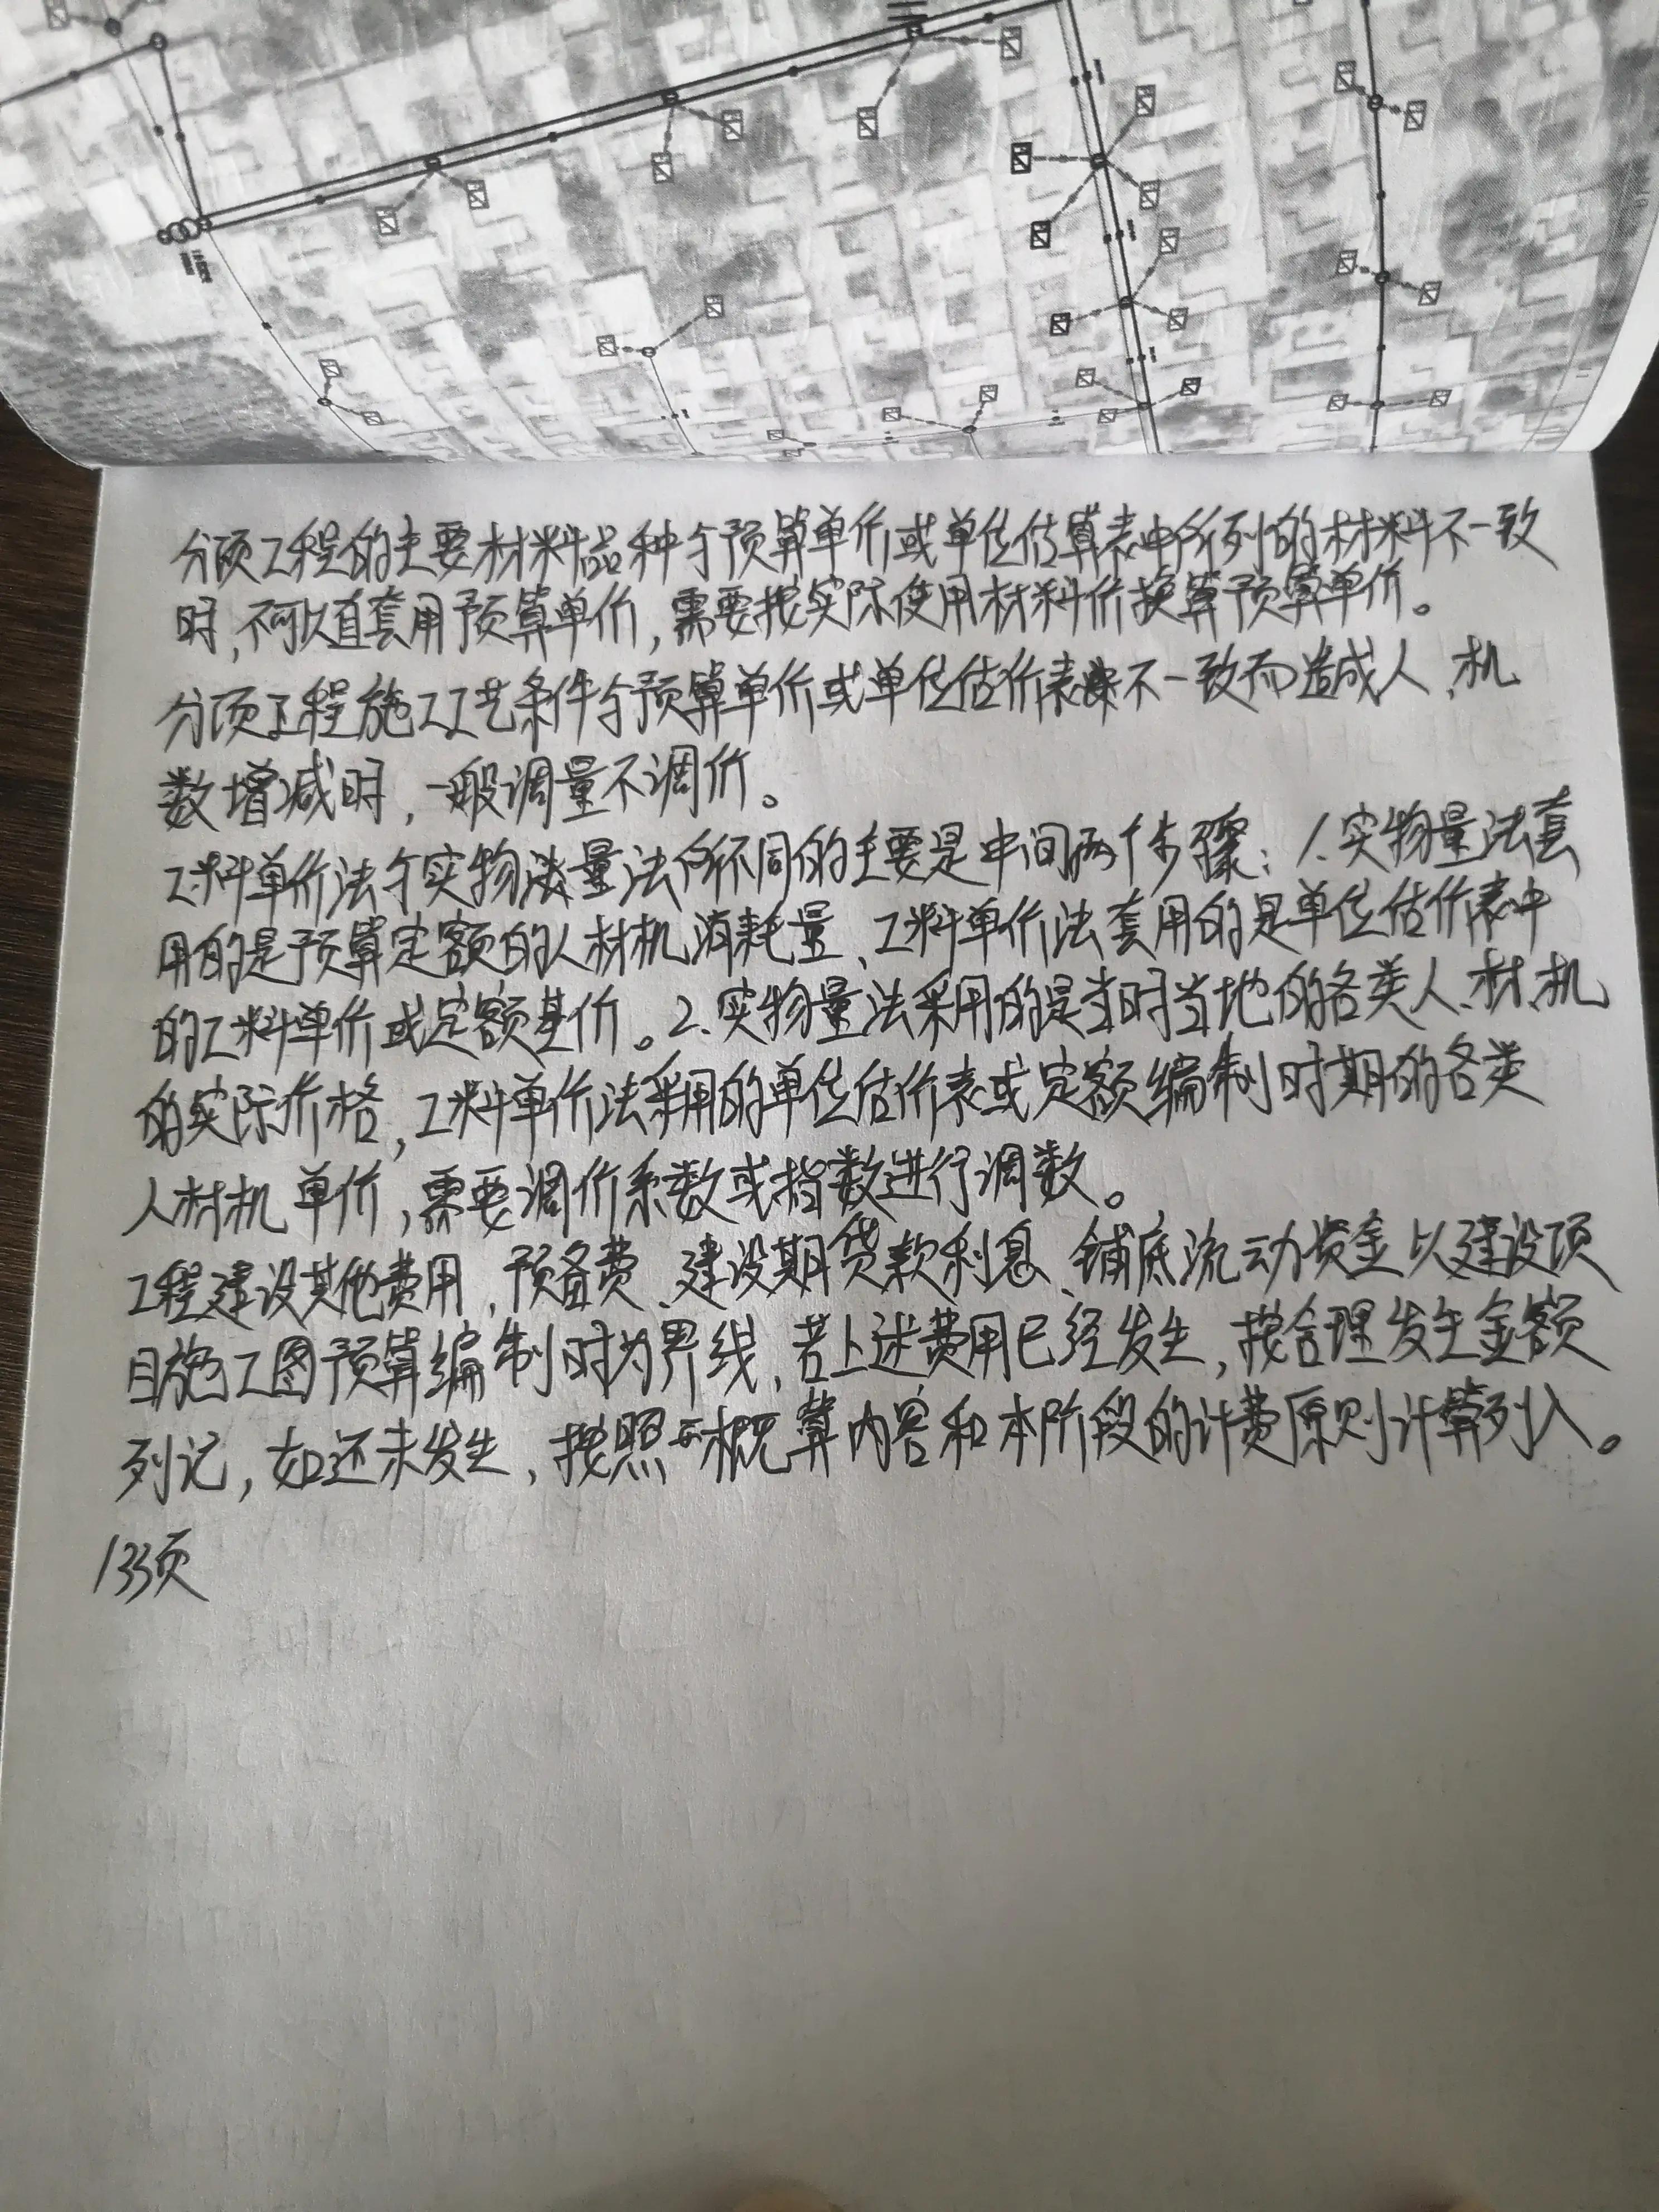 分项工程的主要材料品种与预算单价或单位估算表中所列的材料不一致
时,不可以直套用预算单价,需要按实际使用材料价换算预算单价。
分项工程施工工艺条件与预算单价或单位估价表不一致而造成人、机
数增减时,一般调量不调价。
工料单价法与实物量法所不同的主要是中间两个步骤:1.实物量法套
用的是预算定额的人材机消耗量、工料单价法套用的是单位估价表中
的工料单价或定额基价。2.实物量法采用的是当时当地的各类人、材、机
的实际价格,工料单价法采用的单位估价表或定额编制时期的各类
人材机单价,需要调价系数或指数进行调数。
工程建设其他费用,预备费、建设期贷款利息、铺底流动资金以建设项
目施工图预算编制时为界线,若上述费用已经发生,按合理发生金额
列记,如还未发生,按照概算内容和本阶段的计费原则计算列入。
133页